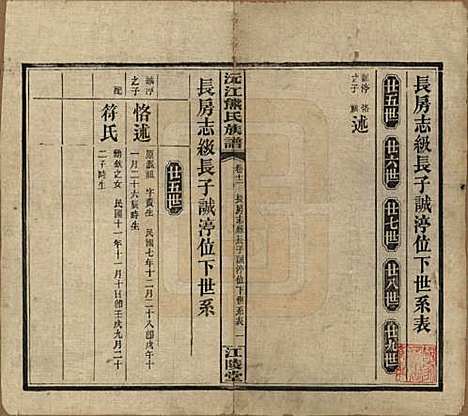 長房志級長子誠渟位下世系表
廿五世 廿六世 廿七世 廿八世 廿九世
誠渟之子 恪述
沅江熊氏族譜
卷十二 長房志級長子誠渟位下世系表
江陵堂
長房志級長子誠渟位下世系
廿五世
誠渟之子
恪述
原 字 生 民國七年十二月二十八即戊午十
一月二十六辰時生
配
符氏
之女 民國十一年十一月十日即壬戌九月二十
二子時生